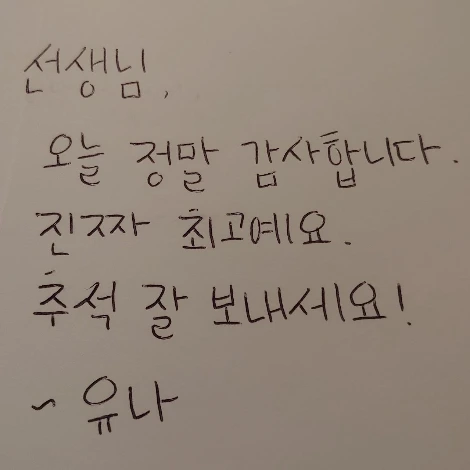 선생님,
오늘 정말 감사합니다.
진짜 최고예요.
추석 잘 보내세요!
~ 유나